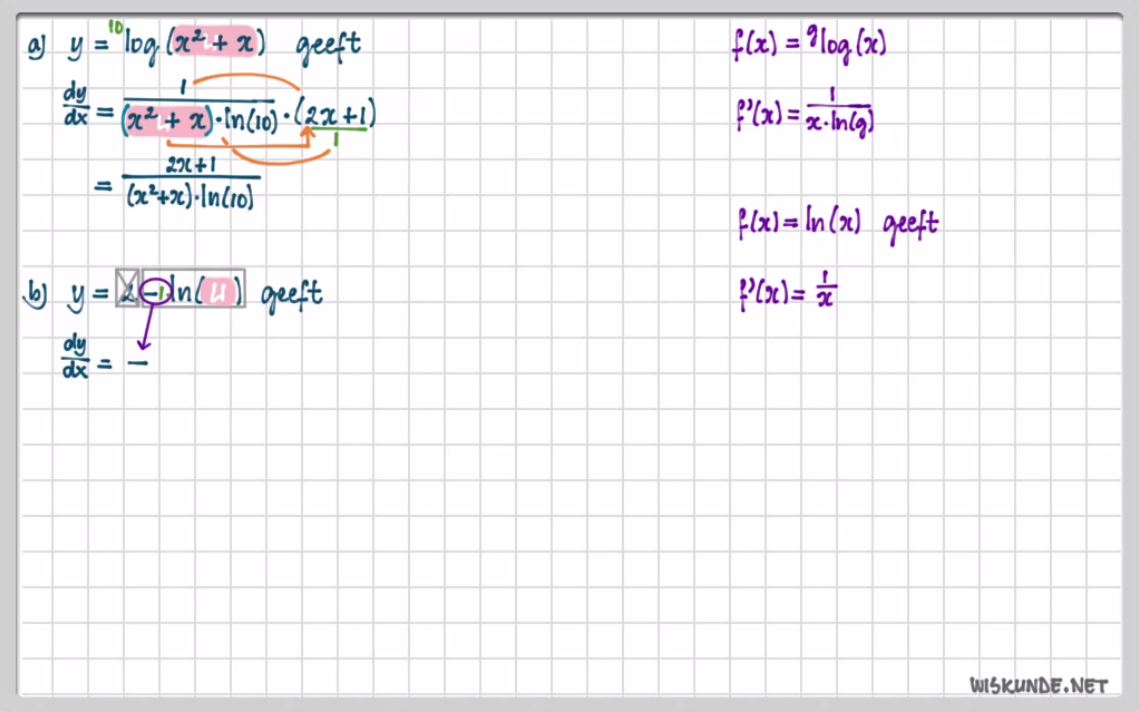 a) y = ¹⁰log (x² + x) geeft
dy/dx = 1/((x² + x)·ln(10)) · (2x+1)
1
= 2x+1/((x²+x)·ln(10))
b) y = 2 -1·ln(u) geeft
dy/dx = -
f(x) = ᵍlog(x)
f'(x) = 1/(x·ln(g))
f(x) = ln(x) geeft
f'(x) = 1/x
WISKUNDE.NET